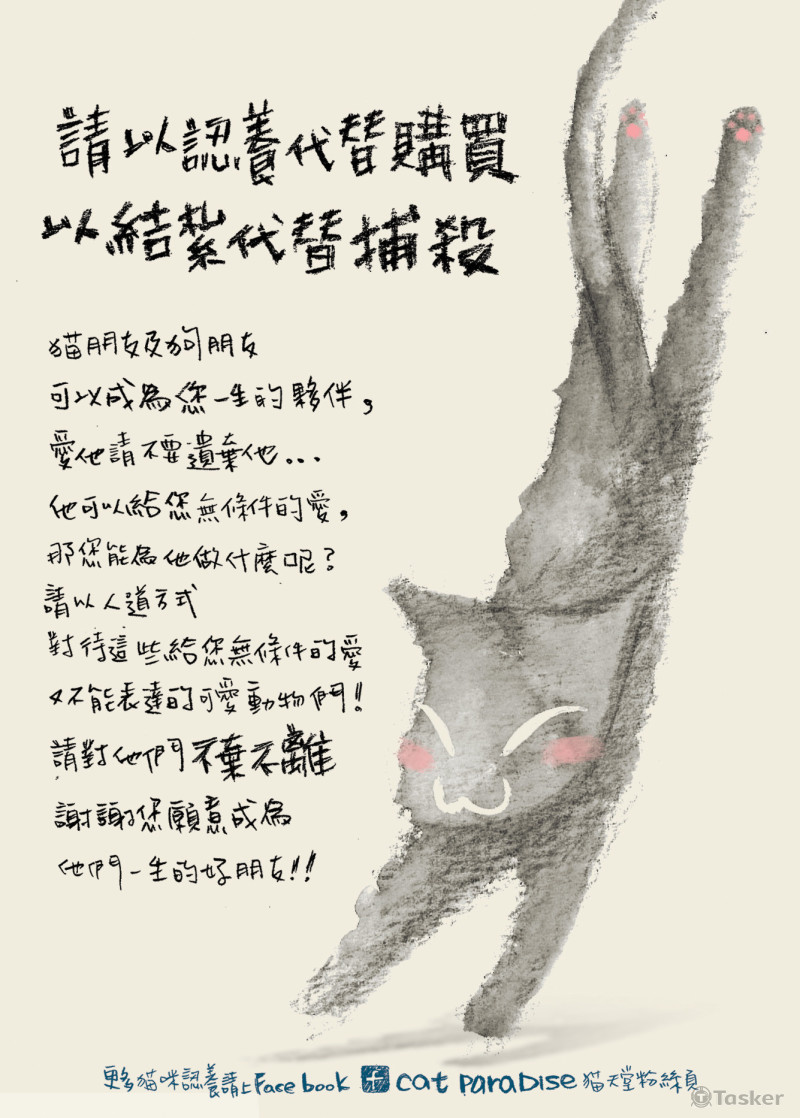 請以認養代替購買
以結紮代替捕殺
猫朋友及狗朋友
可以成為您一生的夥伴,
愛他請不要遺棄他...
他可以給您無條件的愛,
那您能為他做什麼呢?
請以人道方式
對待這些給您無條件的愛
又不能表達的可愛動物們!!
請對他們不棄不離
謝謝您願意成為
他們一生的好朋友!!
更多猫咪認養請上Face book f cat paradise 猫天堂粉絲頁
Tasker